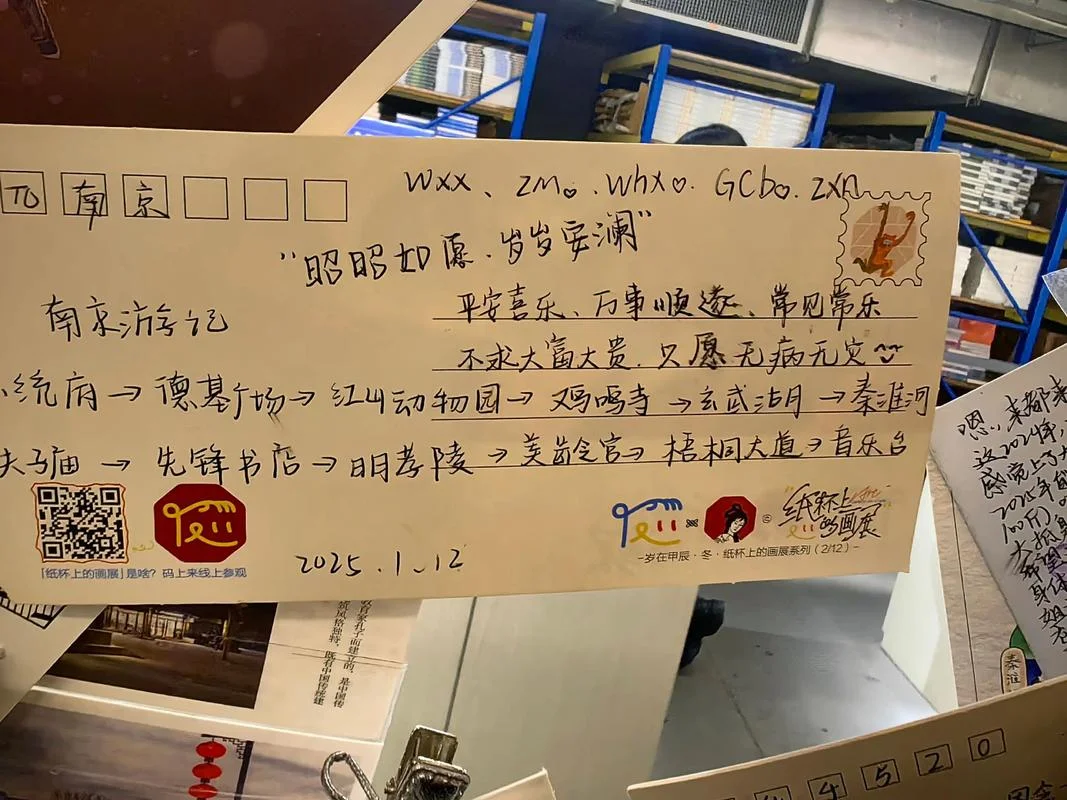 南京
wxx、zm♡.whx♡. GCb♡. zxn
“昭昭如愿.岁岁安澜”
南京游记
平安喜乐、万事顺遂、常见常乐
不求大富大贵.只愿无病无灾
统府→德基广场→红山动物园→鸡鸣寺→玄武湖→秦淮河
夫子庙→先锋书店→明孝陵→美龄宫→梧桐大道→音乐台
「纸杯上的画展」是啥?码上来线上参观
2025.1.12
“纸杯上的画展
-岁在甲辰·冬·纸杯上的画展系列(2/12)-
嗯,来都来
这2024年,
感觉上了大
秦淮
敬首家孔子而建立的,是中国传
筑风格独特,既有中国传统建
4520